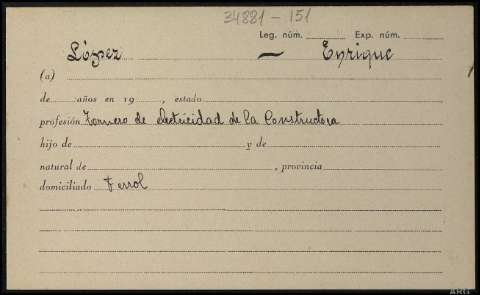 34881-151
Leg. núm. Exp. núm.
López — Enrique
(a)
de años en 19 , estado
profesión Tornero de Electricidad de la Constructora
hijo de y de
natural de , provincia
domiciliado Ferrol